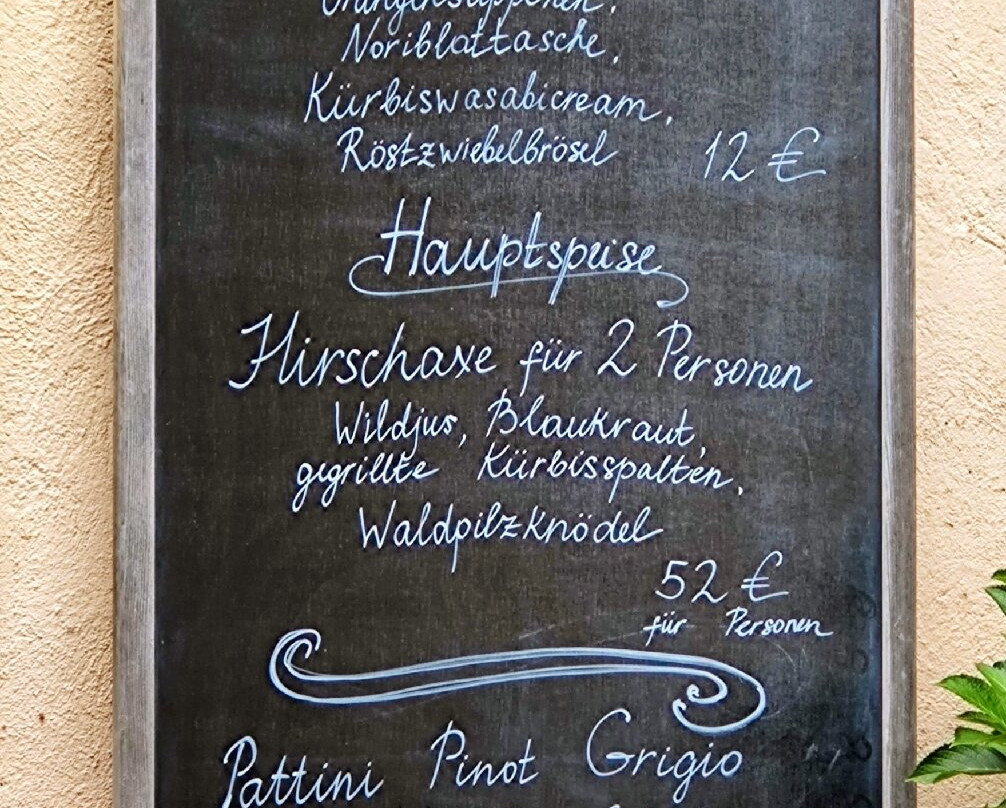 Noriblattasche,
Kürbiswasabicream,
Röstzwiebelbrösel 12 €
Hauptspeise
Hirschaxe für 2 Personen
Wildjus, Blaukraut,
gegrillte Kürbisspalten,
Waldpilzknödel
52 €
für Personen
Pattini Pinot Grigio